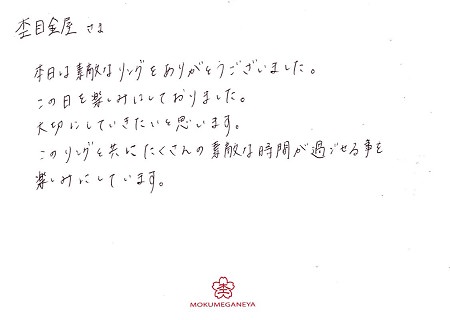 杢目金屋 さま
本日は素敵なリングをありがとうございました。
この日を楽しみにしておりました。
大切にしていきたいと思います。
このリングと共にたくさんの素敵な時間が過ごせる事を
楽しみにしています。
MOKUMEGANEYA